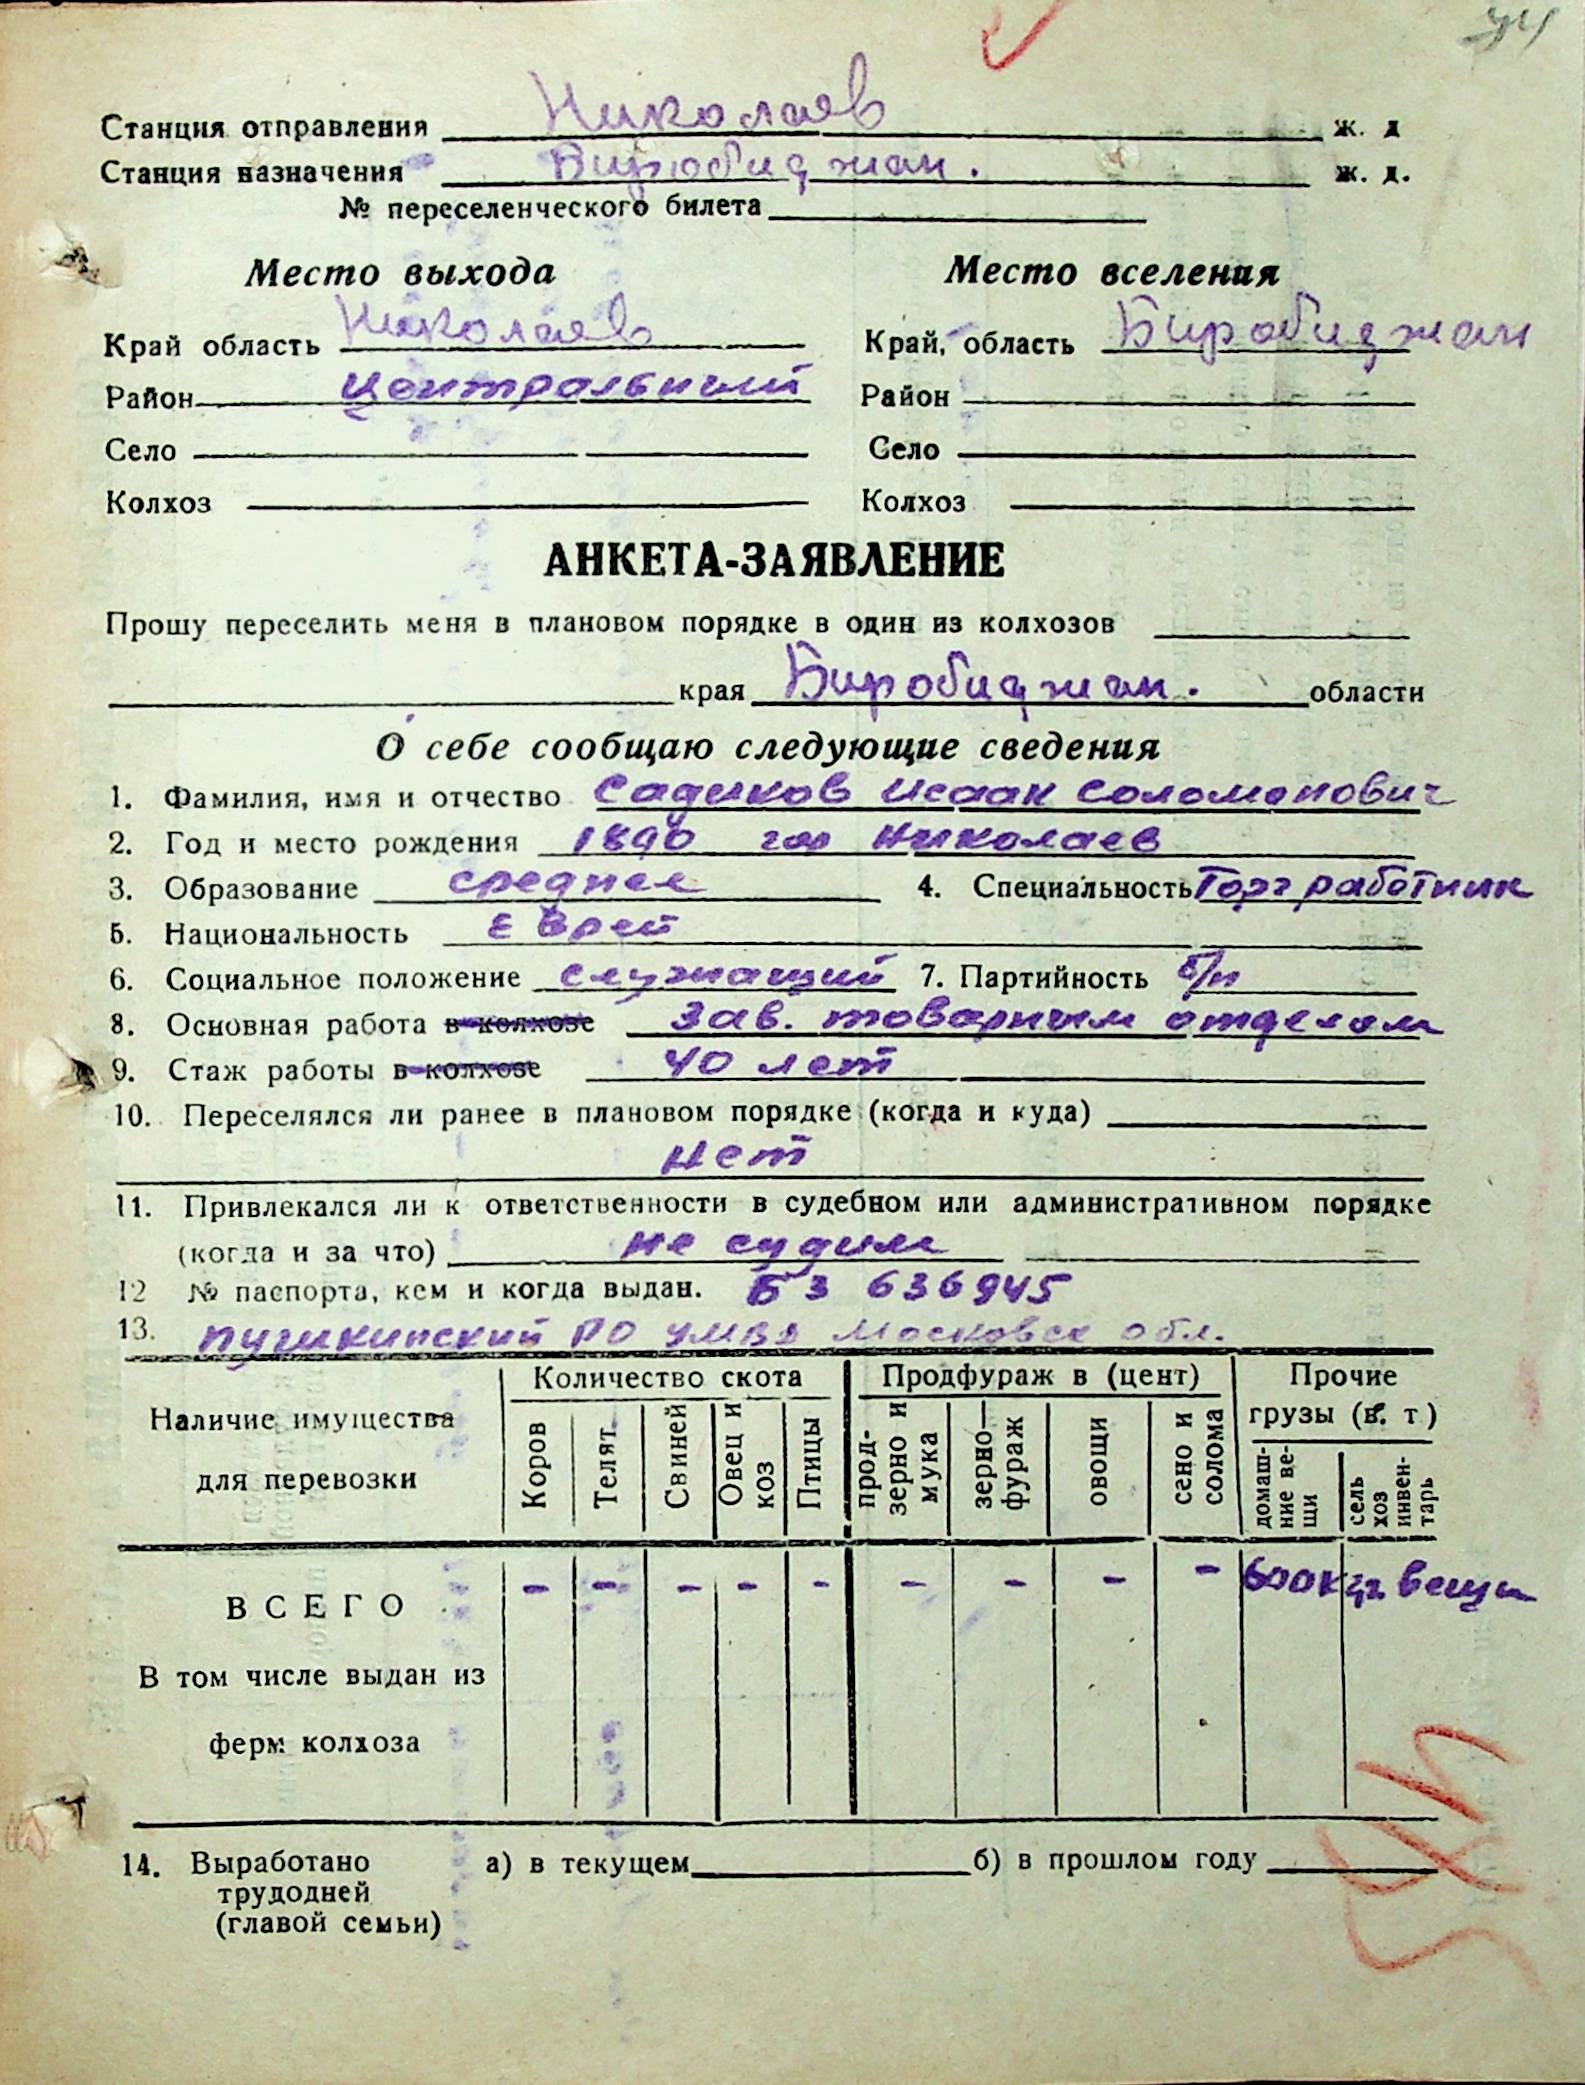 74
Станция отправления Николаев ж. д
Станция назначения Биробиджан. ж. д.
№ переселенческого билета
Место выхода Место вселения
Край область Николаев Край, область Биробиджан
Район Центральный Район
Село Село
Колхоз Колхоз
АНКЕТА-ЗАЯВЛЕНИЕ
Прошу переселить меня в плановом порядке в один из колхозов
края Биробиджан. области
О себе сообщаю следующие сведения
1. Фамилия, имя и отчество Садиков Исаак Соломонович
2. Год и место рождения 1890 гор Николаев
3. Образование среднее 4. Специальность Торг работник
5. Национальность Еврей
6. Социальное положение служащий 7. Партийность б/п
8. Основная работа в колхозе Зав. товарным отделом
9. Стаж работы в колхозе 40 лет
10. Переселялся ли ранее в плановом порядке (когда и куда)
Нет
11. Привлекался ли к ответственности в судебном или административном порядке
(когда и за что) не судим
12 № паспорта, кем и когда выдан. БЗ 636945
13. Пушкинский РО УМВД Московск обл.
Наличие имущества для перевозки
Количество скота
Коров Телят Свиней Овец и коз Птицы
Продфураж в (цент)
прод-зерно и мука зерно-фураж овощи сено и солома
Прочие грузы (в. т)
домаш-ние ве-щи сель хоз инвен-тарь
ВСЕГО - - - - - - - - - 600 кг вещи
В том числе выдан из
ферм колхоза
14. Выработано а) в текущем б) в прошлом году
трудодней
(главой семьи)